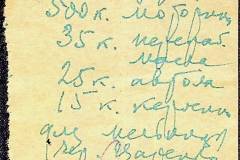 500 к. моторин
35 к. перераб.
масла
25 к. автола
15 к. керосин
для мельниц